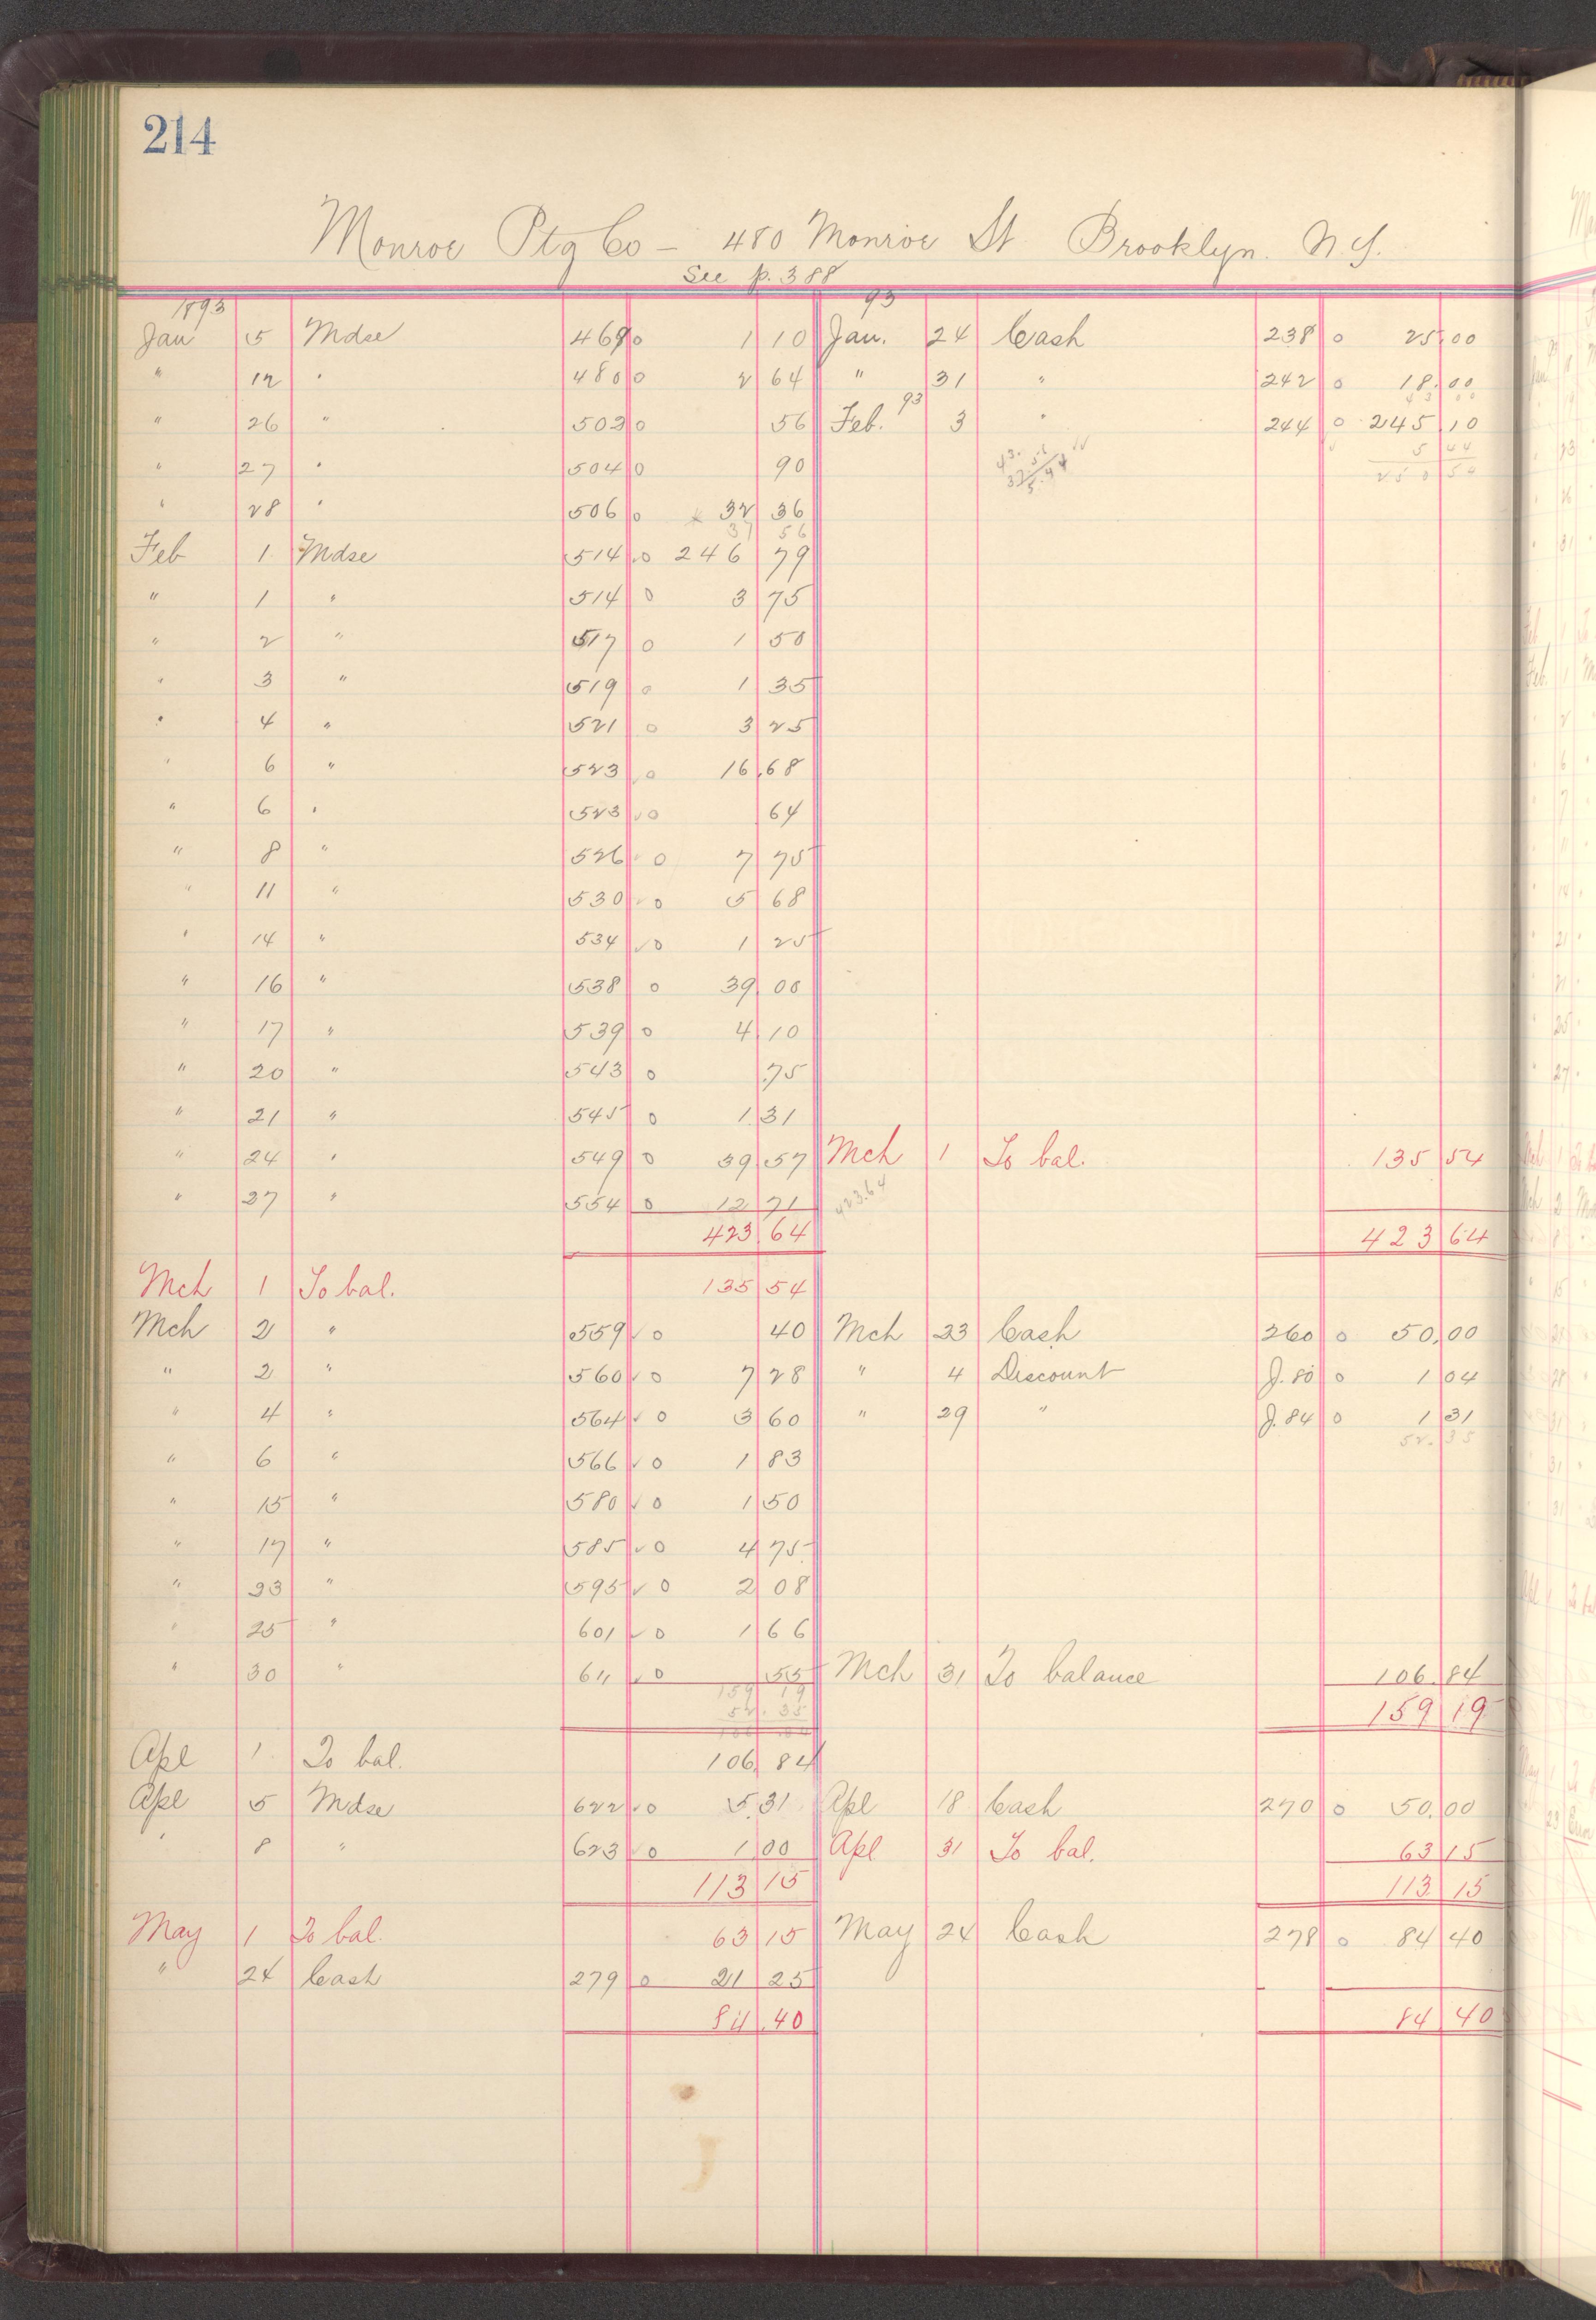 214
Monroe Ptg Co – 480 Monroe St Brooklyn. N.Y.
See p. 388
1893 93
Jan 5 Mdse 469 0 1 10 Jan. 24 Cash 238 0 25 00
" 12 " 480 0 2 64 " 31 " 242 0 18.00
" 26 " 503 0 56 Feb. 93 3 " 244 0 245 10
" 27 " 504 0 90
" 28 " 506 0 32 36
37 56
Feb 1 Mdse 514 0 246 79
" 1 " 514 0 3 75
" 2 " 517 0 1 50
" 3 " 519 0 1 35
" 4 " 521 0 3 25
" 6 " 523 0 16.68
" 6 " 523 0 64
" 8 " 526 0 7 75
" 11 " 530 0 5 68
" 14 " 534 0 1 25
" 16 " 538 0 39 00
" 17 " 539 0 4 10
" 20 " 543 0 .75
" 21 " 545 0 1.31
" 24 " 549 0 39 57 Mch 1 To bal. 135 54
" 27 " 554 0 12 71 423.64
423 64 423 64
Mch 1 To bal. 135 54
Mch 2 " 559 0 40 Mch 23 Cash 260 0 50.00
" 2 " 560 0 7 28 " 4 Discount J. 80 0 1 04
" 4 " 564 0 3 60 " 29 " J. 84 0 1 31
52.35
" 6 " 566 0 1 83
" 15 " 580 0 1 50
" 17 " 585 0 4 75
" 23 " 595 0 2 08
" 25 " 601 0 1 66
" 30 " 611 0 55 Mch 31 To balance 106.84
159 19 159 19
52.35
Apl 1 To bal. 106 84
Apl 5 Mdse 622 0 5.31 Apl 18 Cash 270 0 50.00
" 8 " 623 0 1.00 Apl 31 To bal. 63 15
113 15 113 15
May 1 To bal. 63 15 May 24 Cash 278 0 84 40
" 24 Cash 279 0 21 25
84.40 84 40